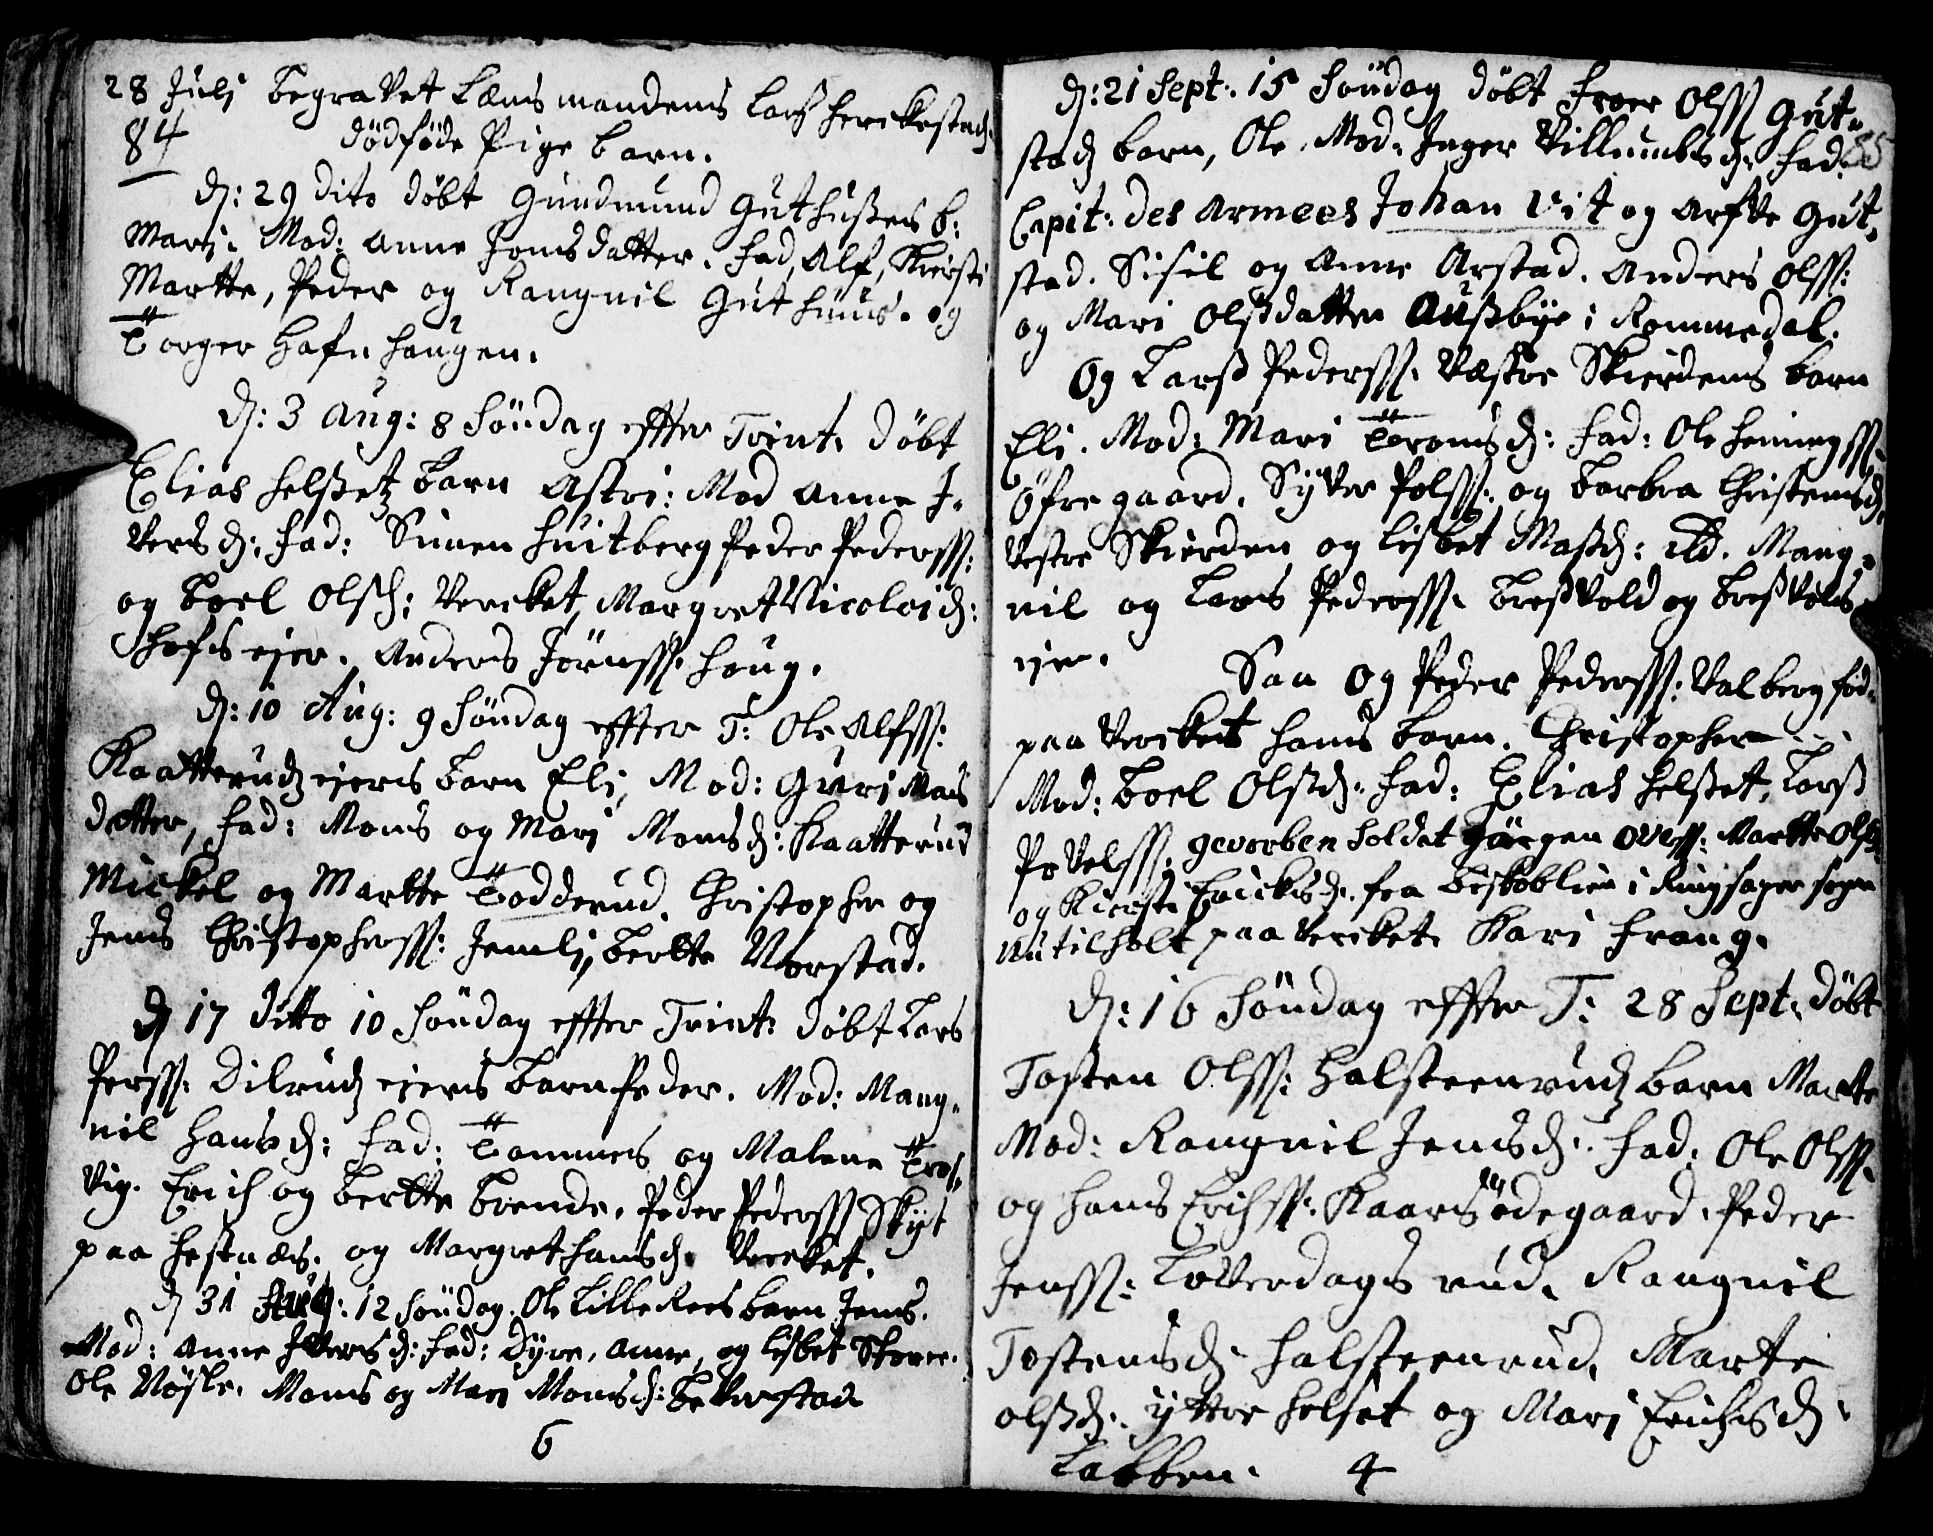 28 Julj begravet Lænsmandens Lars herckestad
84 dödföde Pige barn.
d: 29 dito döbt Gundmund Guthusses b:
Marj: Mod: Anne Jons datter. fad. Alf, Kiersti
Martte, Peder og Rangnil Guthuus. og
Torger Hafn haugen.
d: 3 Aug: 8 Söndag effter Trint. döbt
Elias helsetz barn Astri: Mod Anne I-
vers d: fad: Simen huitberg Peder Pederss:
og Boel Olsd: Vercket, Margret Nicolai d:
Hofs ejer. Anders Jörnss. haug.
d: 10 Aug: 9 Söndag effter T: Ole Alfss:
Kaatterudz ejers barn Eli, Mod: Guri Mons
datter, fad: Mons og Mari Monsd: Kaatterud
Mickel og Martte Todderud. Christopher og
Jens Christopherss: Jemlj, Berthe Norstad.
d 17 ditto 10 Söndag effter Trint: döbt Lars
Perss: Dilrudz ejers barn Peder. Mod: Mang-
nil Hansd: fad: Tommes og Malene Tros-
vig. Erich og Berthe Brende. Peder Pederss Skyt
paa hestnæs. og Margret hansd. Vercket.
d 31 Aug: 12 Söndag. Ole Lille Rees barn Jens.
Mod: Anne Ivers d: fad: Dyre, Anne, og Lisbet
Ole Nöfle. Mons og Mari Monsd: Beverstad
6
d: 21 Sept: 15 Söndag döbt Froer Olss Gut-
85
stad barn, Ole. Mod: Inger Villumbs d: fad:
Capit: des Armees Johan Vit og Arfve Gut-
stad. Sisil og Anne Arstad. Anders Olss:
og Mari Olssdatter Aussbye i Rommedal.
Og Larss Pederss: Væstre Skierdens barn
Eli. Mod: Mari Troms d: fad: Ole henningss:
Öfre gaard. Syver Polss: og Barbra Christensd:
Vestre Skierden og Lisbet Massd: ibd. Mang-
nil og Lars Pederss. Bressvold og Bressvolds
ejer.
Saa og Peder Pederss: Valberg fød.
paa Vercket hans barn. Christopher
Mod: Boel Olssd: fad: Elias helset, Larss
Povelss: gevorben Soldat Jürgen Ovess: Martte Olsd:
og Kiersti Ericksd. fra Biskoblien i Ringsager sogn
nu tilholt paa Vercket. Kari Frang.
d: 16 Söndag effter T: 28 Sept: döbt
Tosten Olss: Halsteenrudz barn Marte
Mod: Rangnil Jensd: fad: Ole Olss:
og Hans Erichss: Kaars ödegaard. Peder
Jenss: Löverdags rud. Rangnil
Tostensd: halsteenrud. Marte
olssd: ytter helset og Mari Erichsd:
Labben. 4